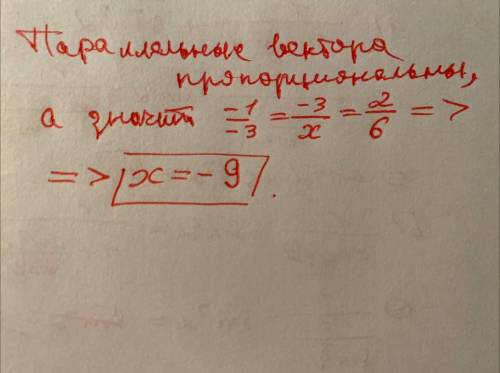 Параллельные вектора
пропорциональны,
а значит -1/-3 = -3/x = 2/6 =>
=> x = -9.